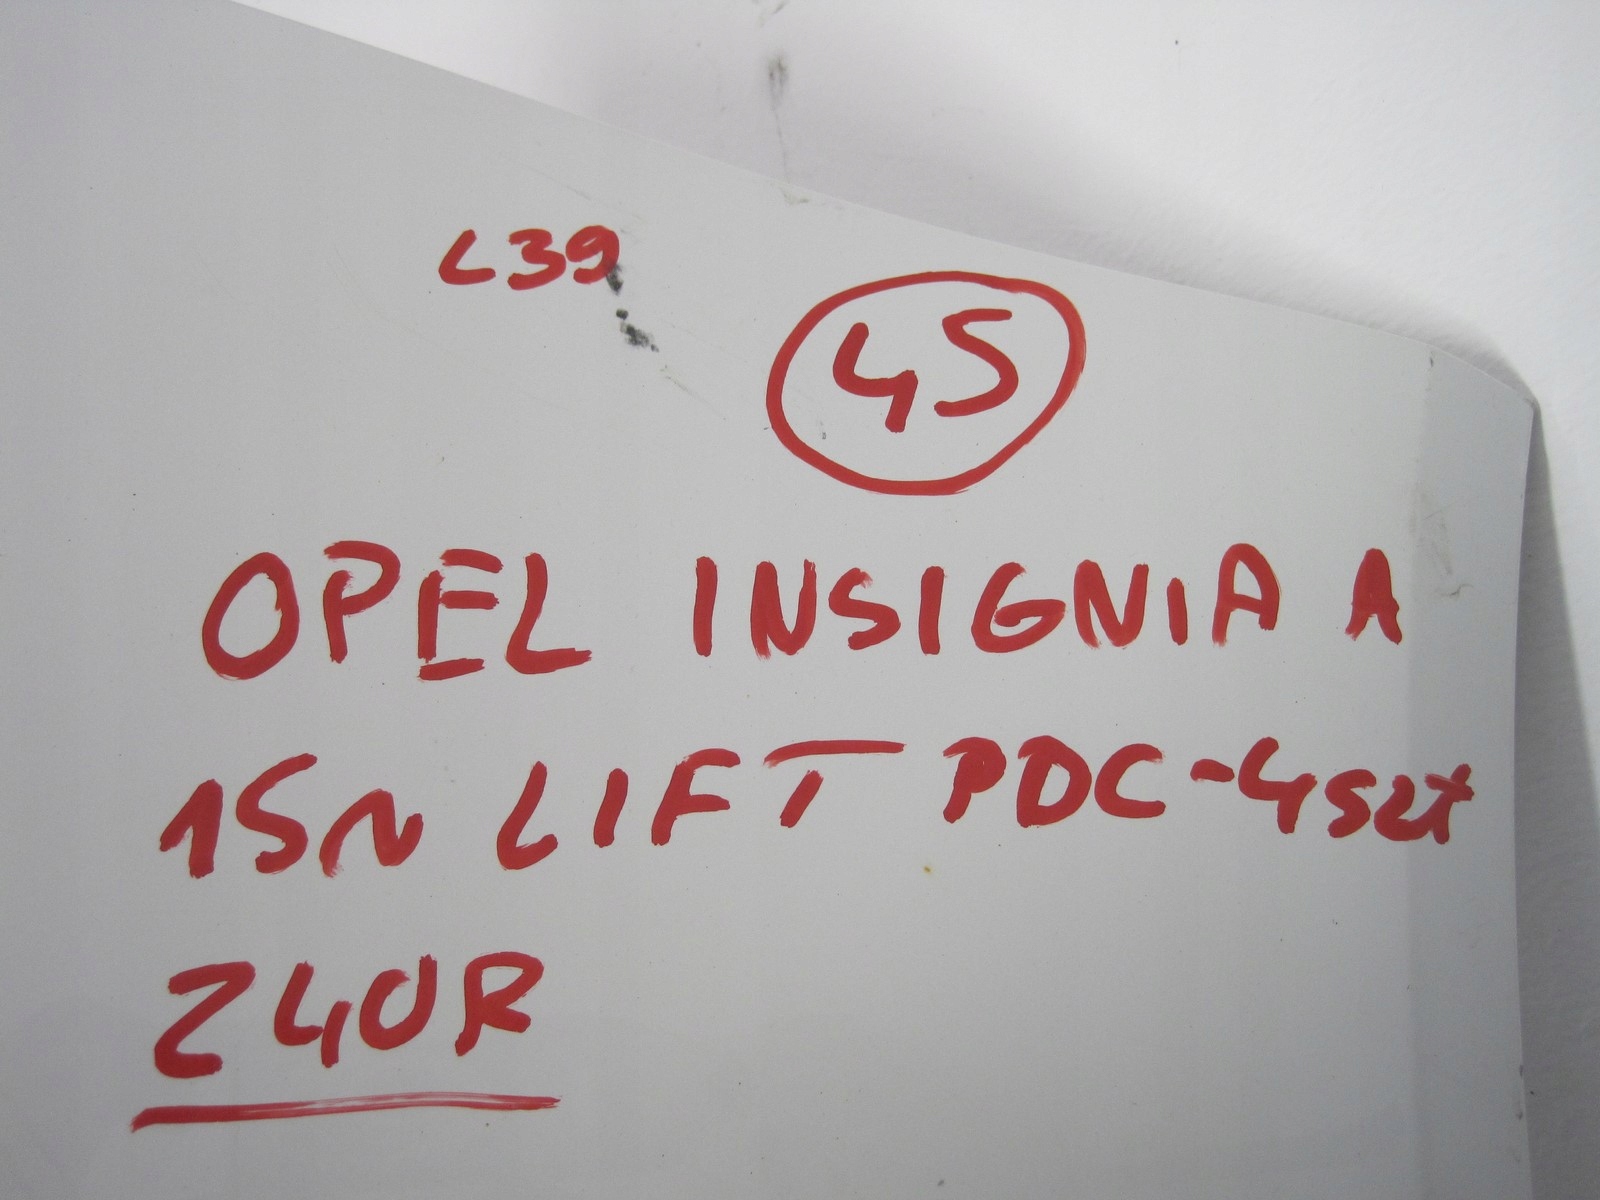 L39
45
OPEL INSIGNIA A
15r LIFT PDC-4szt
Z40R